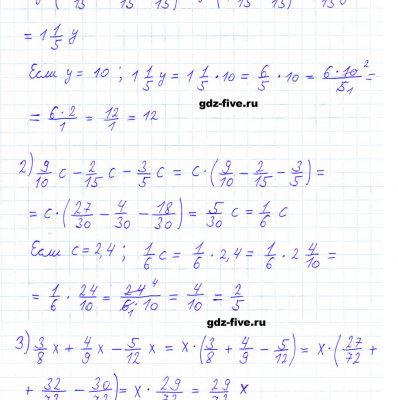 = 1 1/5 y
Если y = 10 ; 1 1/5 y = 1 1/5 · 10 = 6/5 · 10 = 6·10²/5₁ =
= 6·2/1 = 12/1 = 12
gdz-five.ru
2) 9/10 c − 2/15 c − 3/5 c = c · (9/10 − 2/15 − 3/5) =
= c · (27/30 − 4/30 − 18/30) = 5/30 c = 1/6 c
Если c = 2,4 ; 1/6 c = 1/6 · 2,4 = 1/6 · 2 4/10 =
= 1/6 · 24/10 = 24⁴/6₁·10 = 4/10 = 2/5
gdz-five.ru
3) 3/8 x + 4/9 x − 5/12 x = x · (3/8 + 4/9 − 5/12) = x · (27/72 +
+ 32/72 − 30/72) = x · 29/72 = 29/72 x